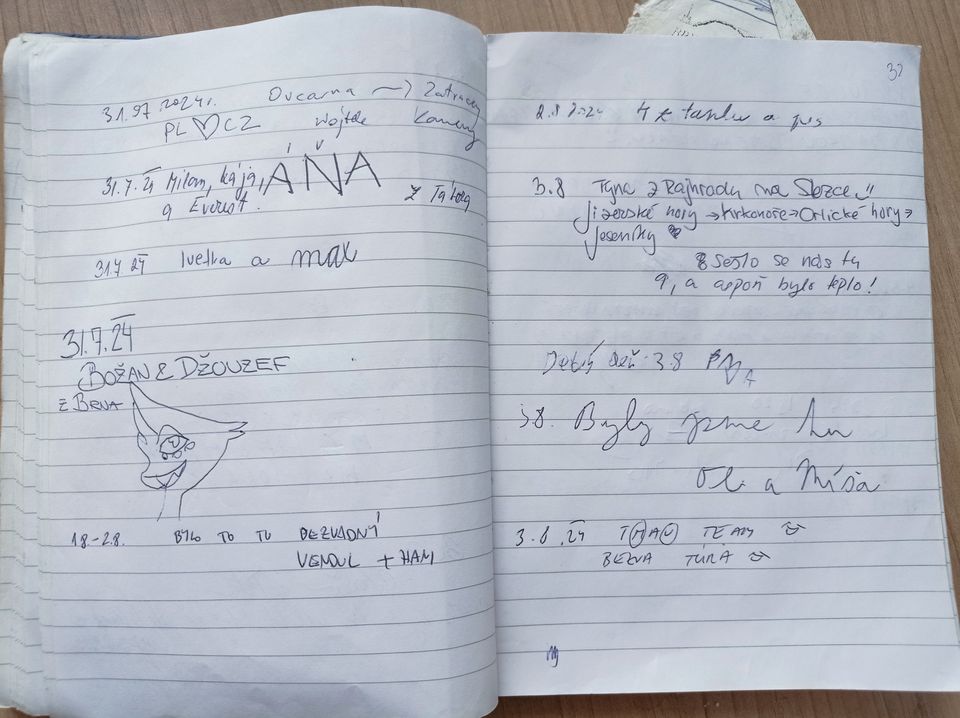 31.07.2024r. Ovcarna → Zatracený
PL ♡ CZ Wojtek Kameny
31.7.24 Milan, Kája, ÁŇA
a Everest. z Tábora
31.7.24 Ivetka a max
31.7.24
BOŽAN & DŽOUZEF
Z BRNA
1.8-2.8. BYLO TO TU BEZVADNÝ
VENDUL + HAM
32
2.8 4 a pes
3.8 Týna z Rajhradu na Stezce!!
Jizerské hory → Krkonoše → Orlické hory →
Jeseníky ♥
Sešlo se nás tu
9, a aspoň bylo teplo!
3.8
3.8. Byly jsme tu
a Míša
3.8.24 THAU TEAM
BEZVA TÚRA